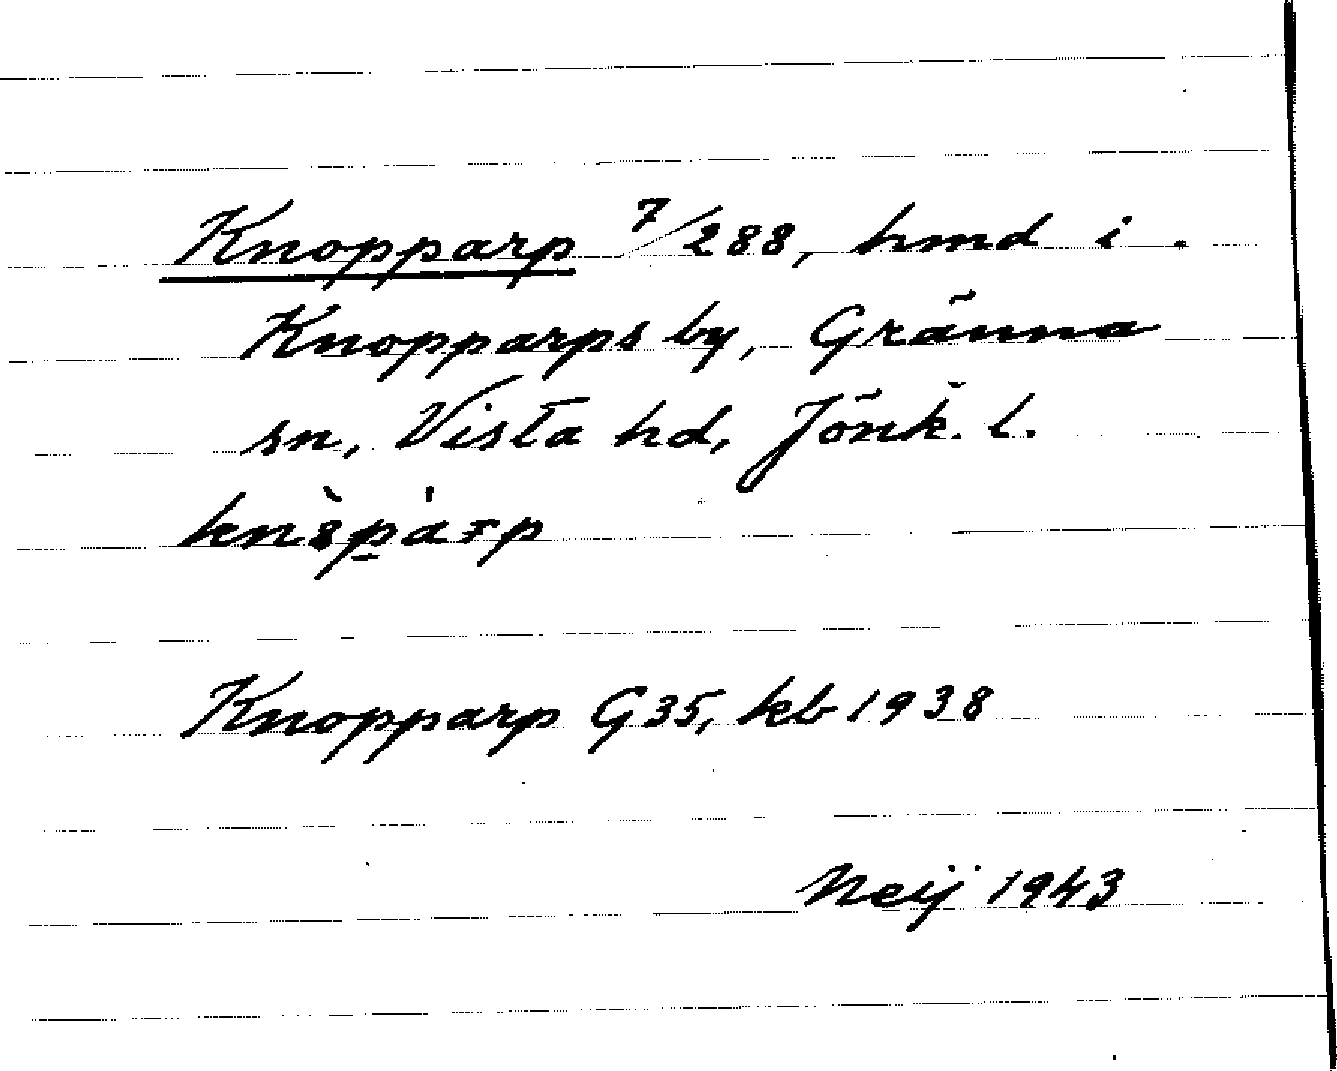 Knopparp 7/288, hmd i
Knopparps by, Gränna
sn, Vista hd, Jönk. l.
Knopparp G35, kb 1938
Neij 1943